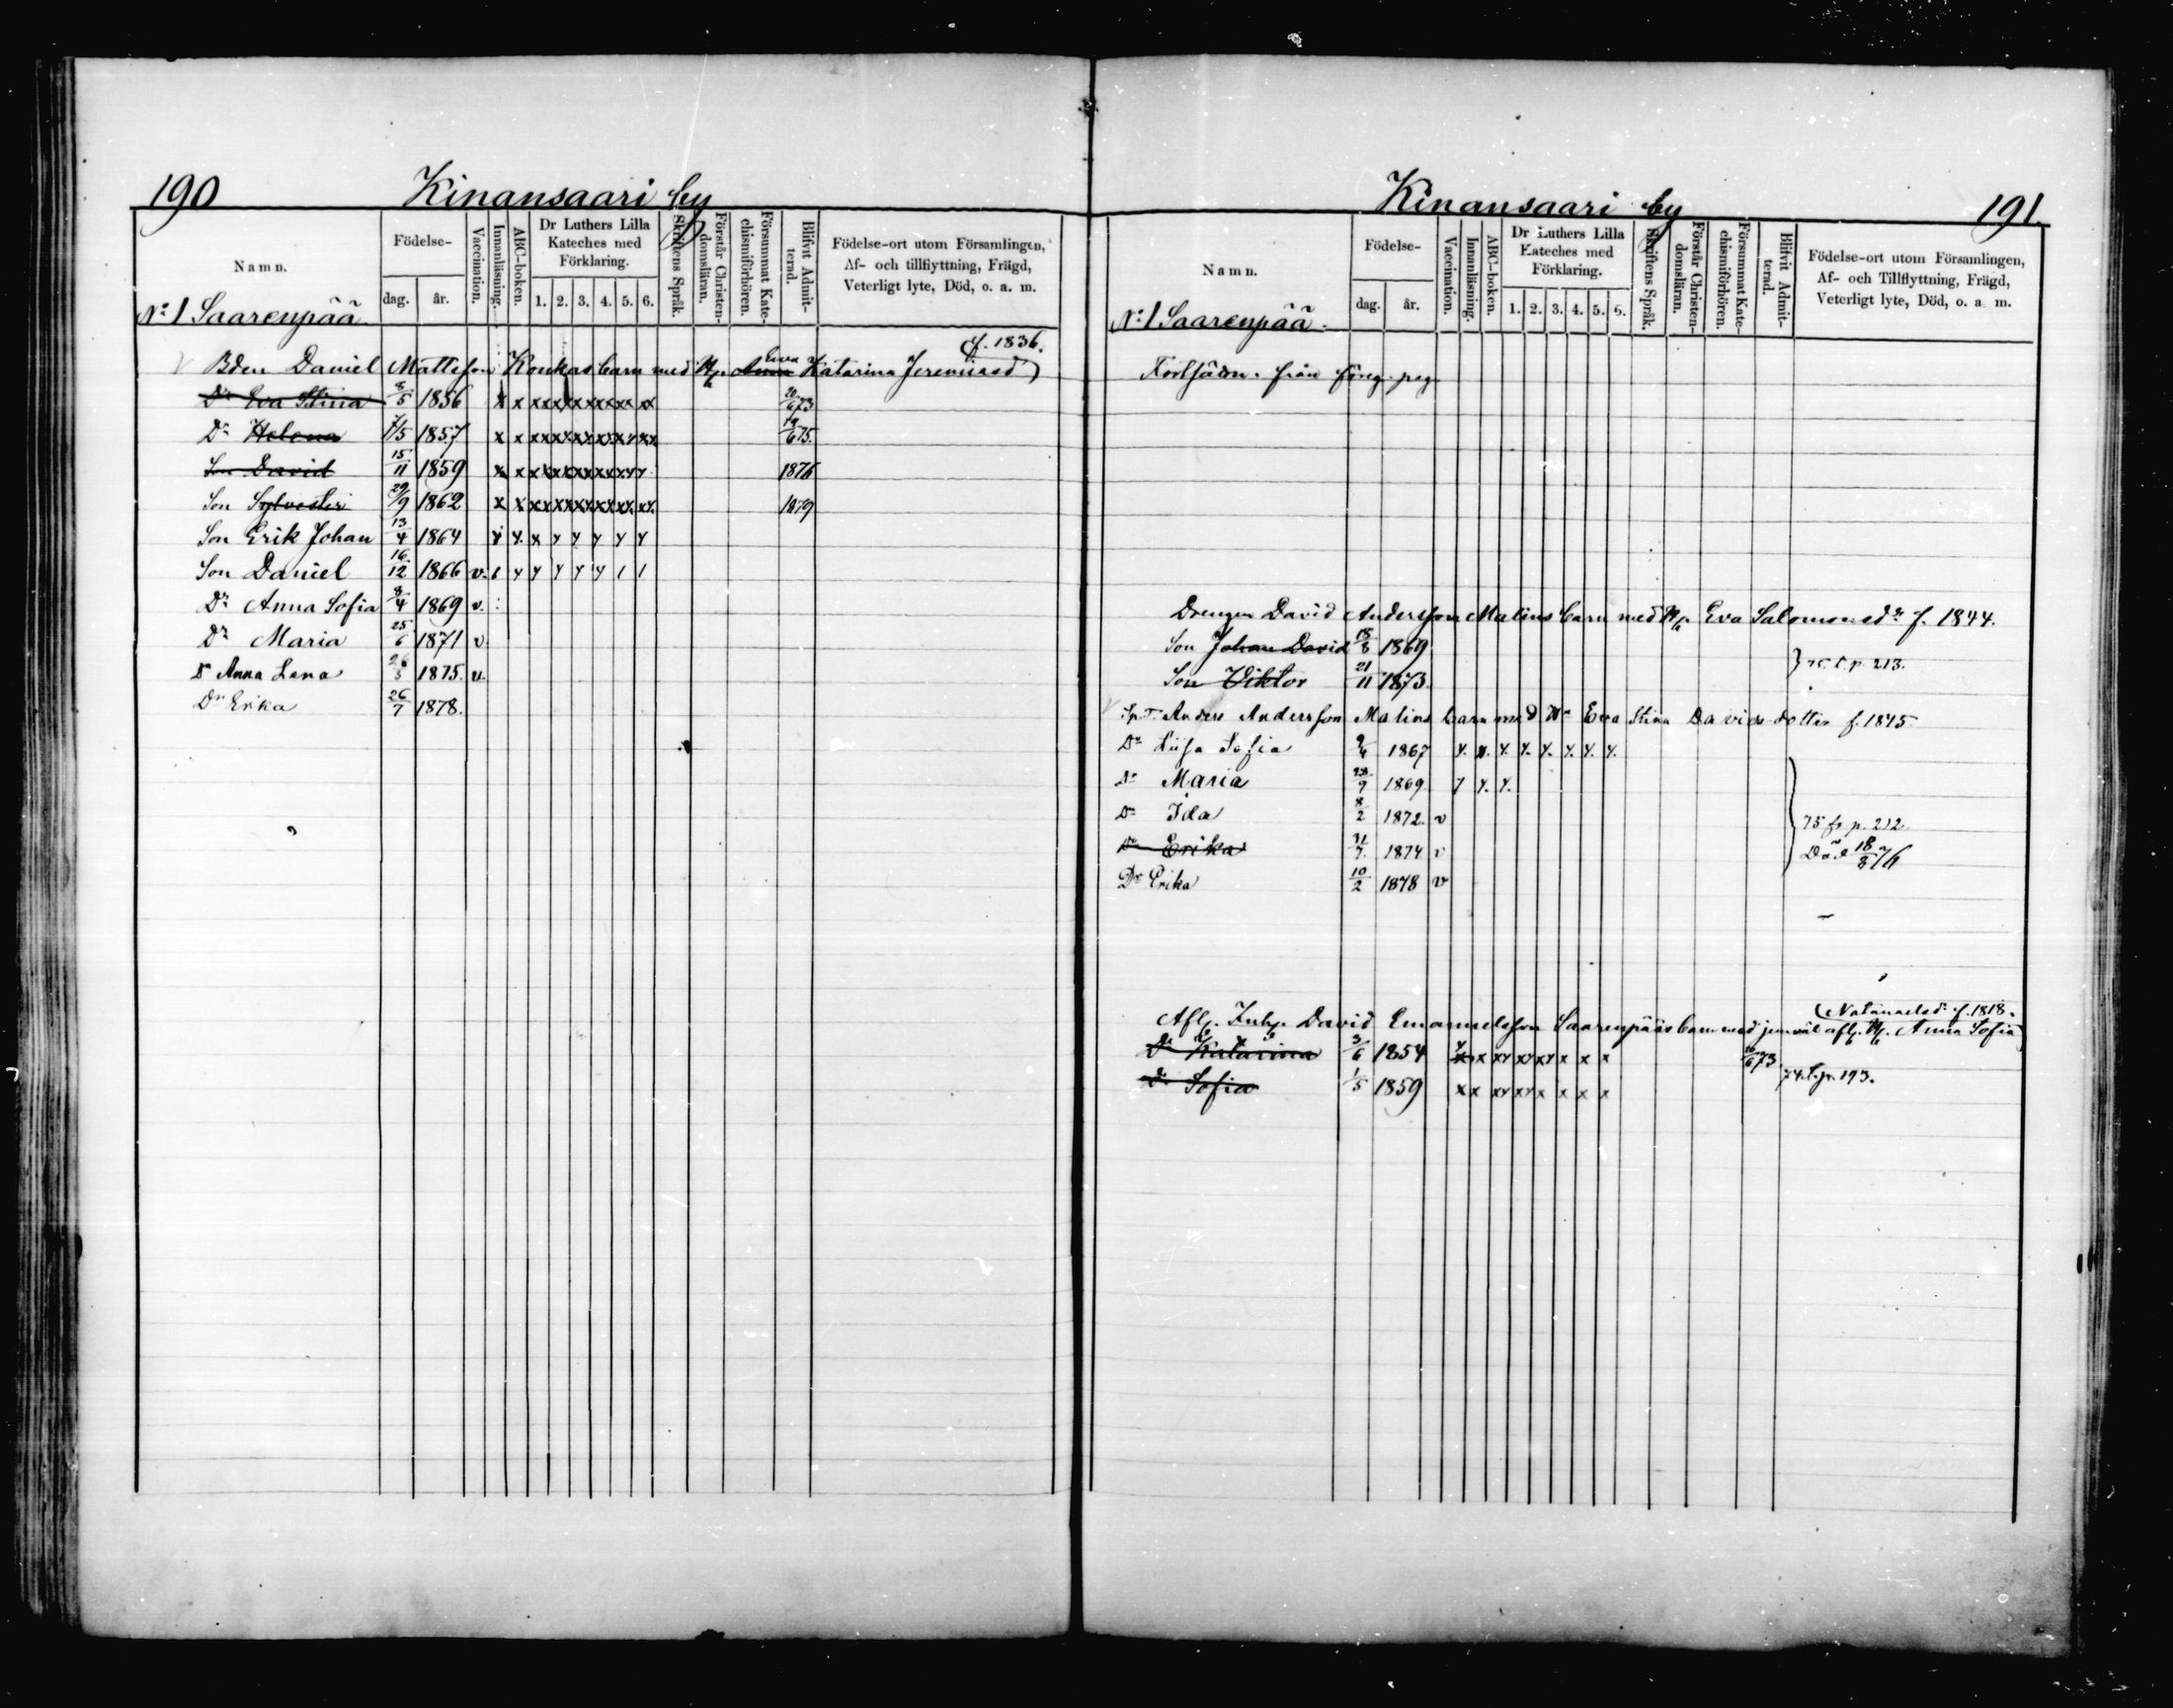 190 Kinansaari by
Namn. Födelse- dag. år. Vaccination. Innanläsning. ABC-boken. Dr Luthers Lilla Kateches med Förklaring. 1. 2. 3. 4. 5. 6. Skriftens Språk. Förstår Christendomsläran. Försummat Katechismiförhören. Blifvit Admitterad. Födelse-ort utom Församlingen, Af- och tillflyttning, Frägd, Veterligt lyte, Död, o. a. m.
No 1 Saarenpää
f. 1836.
Bden Daniel Mattsson Konkas barn med H. Anna Eva Katarina Jeremiasd
Dr Eva Stina 8/5 1856 x x xx xx xx xx xx xx 20/6 73
Dr Helena 7/5 1857 x x xx xx xx xx xx xx 19/6 75.
Son David 15/11 1859 x x 1876
Son Sylvester 29/9 1862 x x xx xx xx xx xx xx 1879
Son Erik Johan 13/4 1864
Son Daniel 16/12 1866 v.
Dr Anna Sofia 8/4 1869 v.
Dr Maria 25/6 1871 v
Dr Anna Lena 1875. v.
Dr Erika 26/7 1878.
Kinansaari by 191.
Namn. Födelse- dag. år. Vaccination. Innanläsning. ABC-boken. Dr Luthers Lilla Kateches med Förklaring. 1. 2. 3. 4. 5. 6. Skriftens Språk. Förstår Christendomsläran. Försummat Katechismiförhören. Blifvit Admitterad. Födelse-ort utom Församlingen, Af- och Tillflyttning, Frägd, Veterligt lyte, Död, o. a. m.
No 1 Saarenpää.
från föreg. pag.
Drengen David Andersson Malins barn med H. Eva Salomonsdr f. 1844.
Son Johan David 18/8 1869
p. 213.
Son Viktor 21/11 1873
Anders Andersson Malins barn med Hu Eva Stina Davidsdotter f. 1845
Dr Liisa Sofia 9/4 1867
Dr Maria 1869
Dr Ida 8/2 1872. v
75 fr p. 212.
Dr Erika 1874 v Död 18/8 76
Dr Erika 10/2 1878 v
Natanaelsdr f. 1818.
Afl. Inh. David Emanuelsson Saarenpääs barn med jemväl afl. H. Anna Sofia
Dr Katarina 3/6 1854 73
74 t. p. 193.
Dr Sofia 1/5 1859